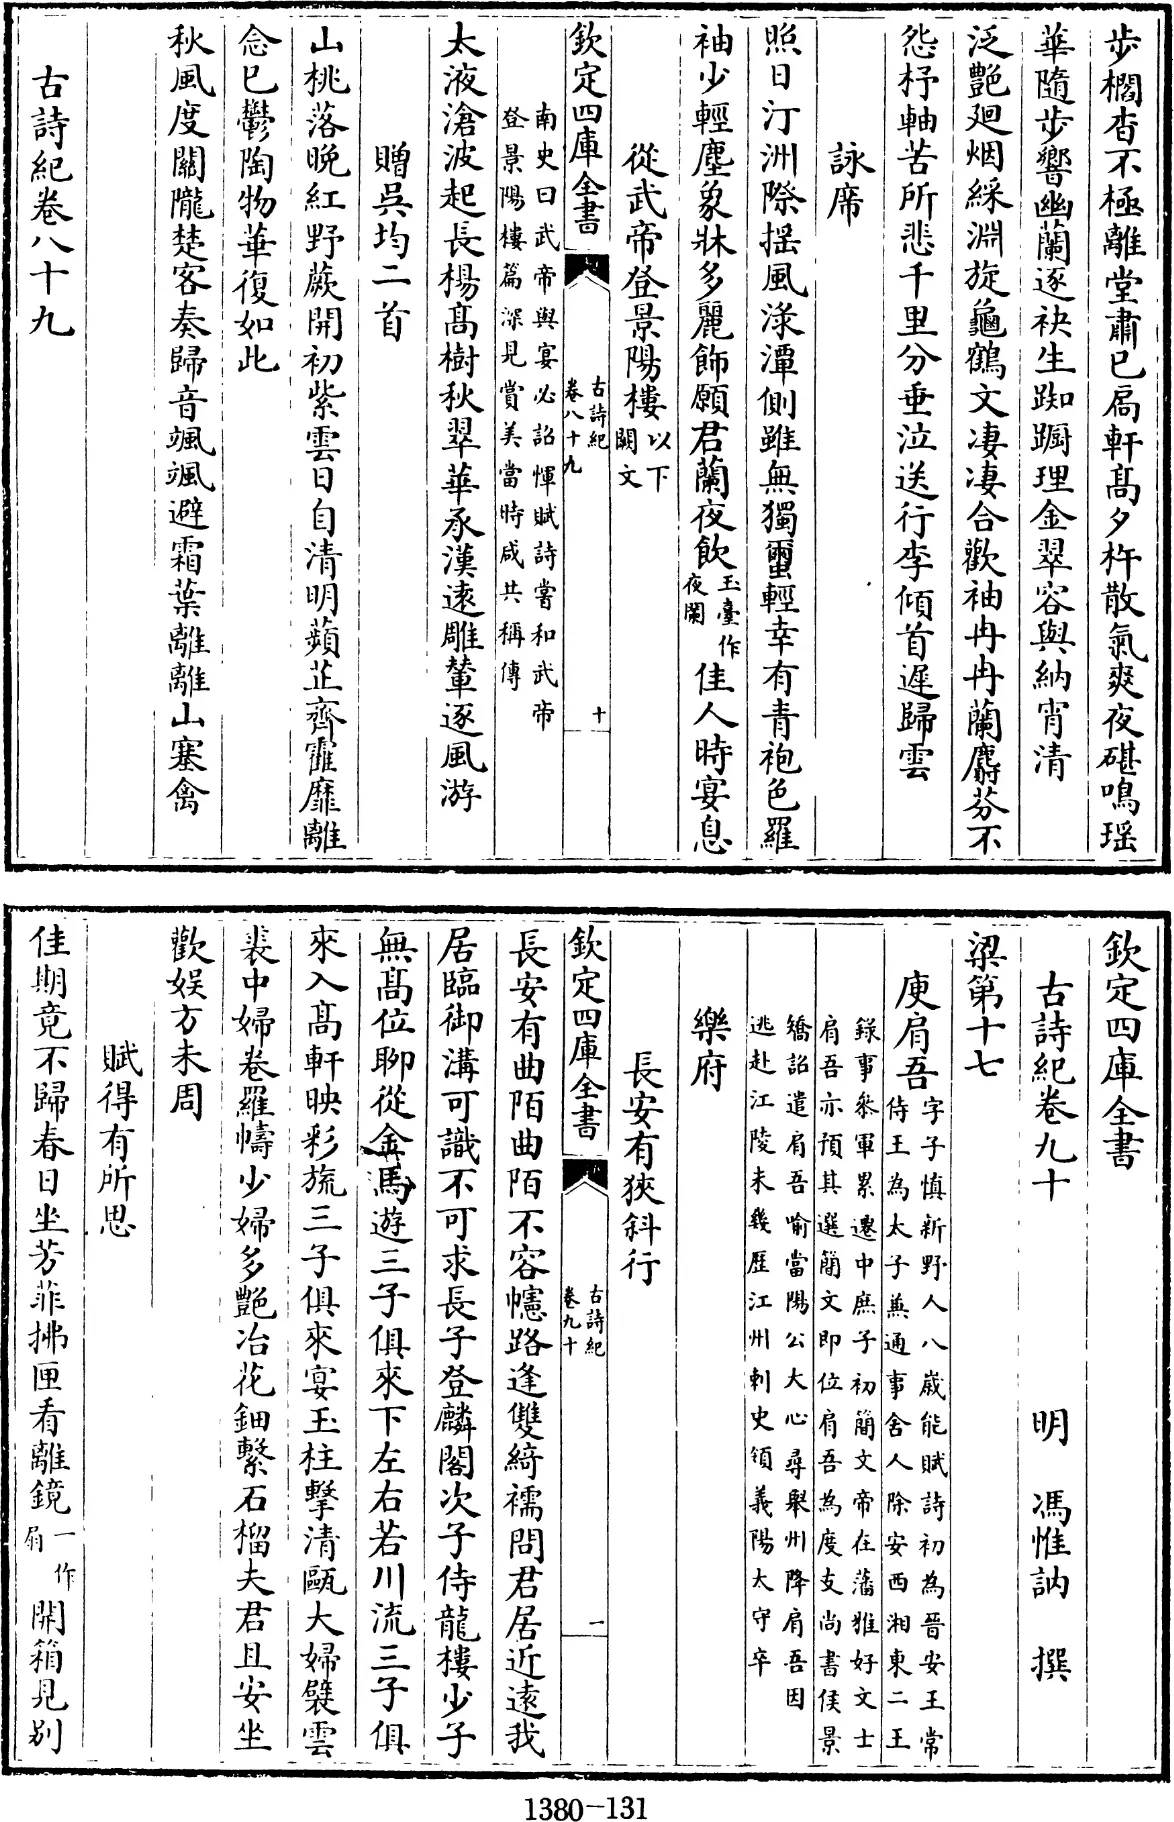 步櫩杳不極離堂肅已扃軒髙夕杵散氣爽夜碪鳴瑶
華隨步響幽蘭逐袂生踟蹰理金翠容與納宵清
泛艷廻烟綵淵旋龜鶴文凄凄合歡袖冉冉蘭麝芬不
怨杼軸苦所悲千里分垂泣送行李傾首遲歸雲
詠席
照日汀洲際揺風渌潭側雖無獨璽輕幸有青袍色羅
袖少輕塵象牀多麗飾願君蘭夜飲玉臺作夜闌佳人時宴息
從武帝登景陽樓以下闕文
欽定四庫全書 古詩紀卷八十九 十
南史曰武帝與宴必詔惲賦詩嘗和武帝
登景陽樓篇深見賞美當時咸共稱傳
太液滄波起長楊髙樹秋翠華承漢逺雕輦逐風游
贈吳均二首
山桃落晚紅野蕨開初紫雲日自清明蘋芷齊霍靡離
念已鬱陶物華復如此
秋風度關隴楚客奏歸音颯颯避霜葉離離山塞禽
古詩紀卷八十九
欽定四庫全書
古詩紀卷九十 明 馮惟訥 撰
梁第十七
庾肩吾字子慎新野人八歳能賦詩初為晉安王常
侍王為太子兼通事舍人除安西湘東二王
錄事叅軍累遷中庶子初簡文帝在藩雅好文士
肩吾亦預其選簡文即位肩吾為度支尚書侯景
矯詔遣肩吾喻當陽公大心尋舉州降肩吾因
逃赴江陵未幾歴江州刺史領義陽太守卒
樂府
長安有狹斜行
欽定四庫全書 古詩紀卷九十 一
長安有曲陌曲陌不容幰路逢雙綺襦問君居近逺我
居臨御溝可識不可求長子登麟閣次子侍龍樓少子
無髙位聊從金馬遊三子俱來下左右若川流三子俱
來入髙軒映彩旒三子俱來宴玉柱擊清甌大婦襞雲
裘中婦卷羅幬少婦多艷冶花鈿繫石榴夫君且安坐
歡娛方未周
賦得有所思
佳期竟不歸春日坐芳菲拂匣看離鏡一作扇開箱見别
1380-131